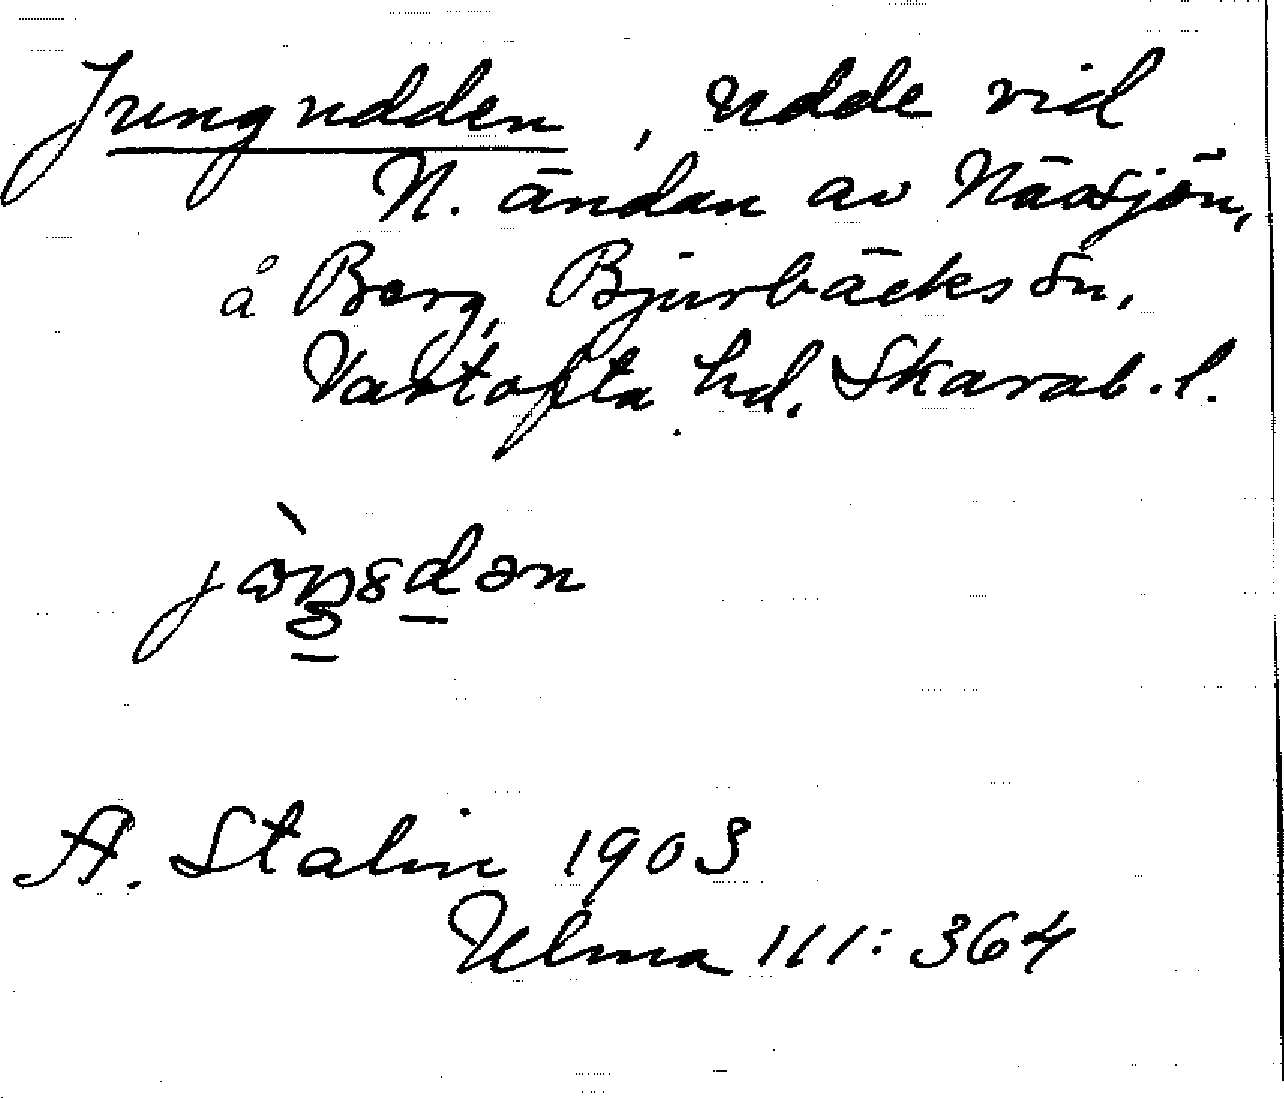 Jungudden, udde vid
N. ändan av Nässjön,
å Berg, Bjurbäcks sn,
Vartofta hd. Skarab. l.
A. Stalin 1903
Ulma 111:364